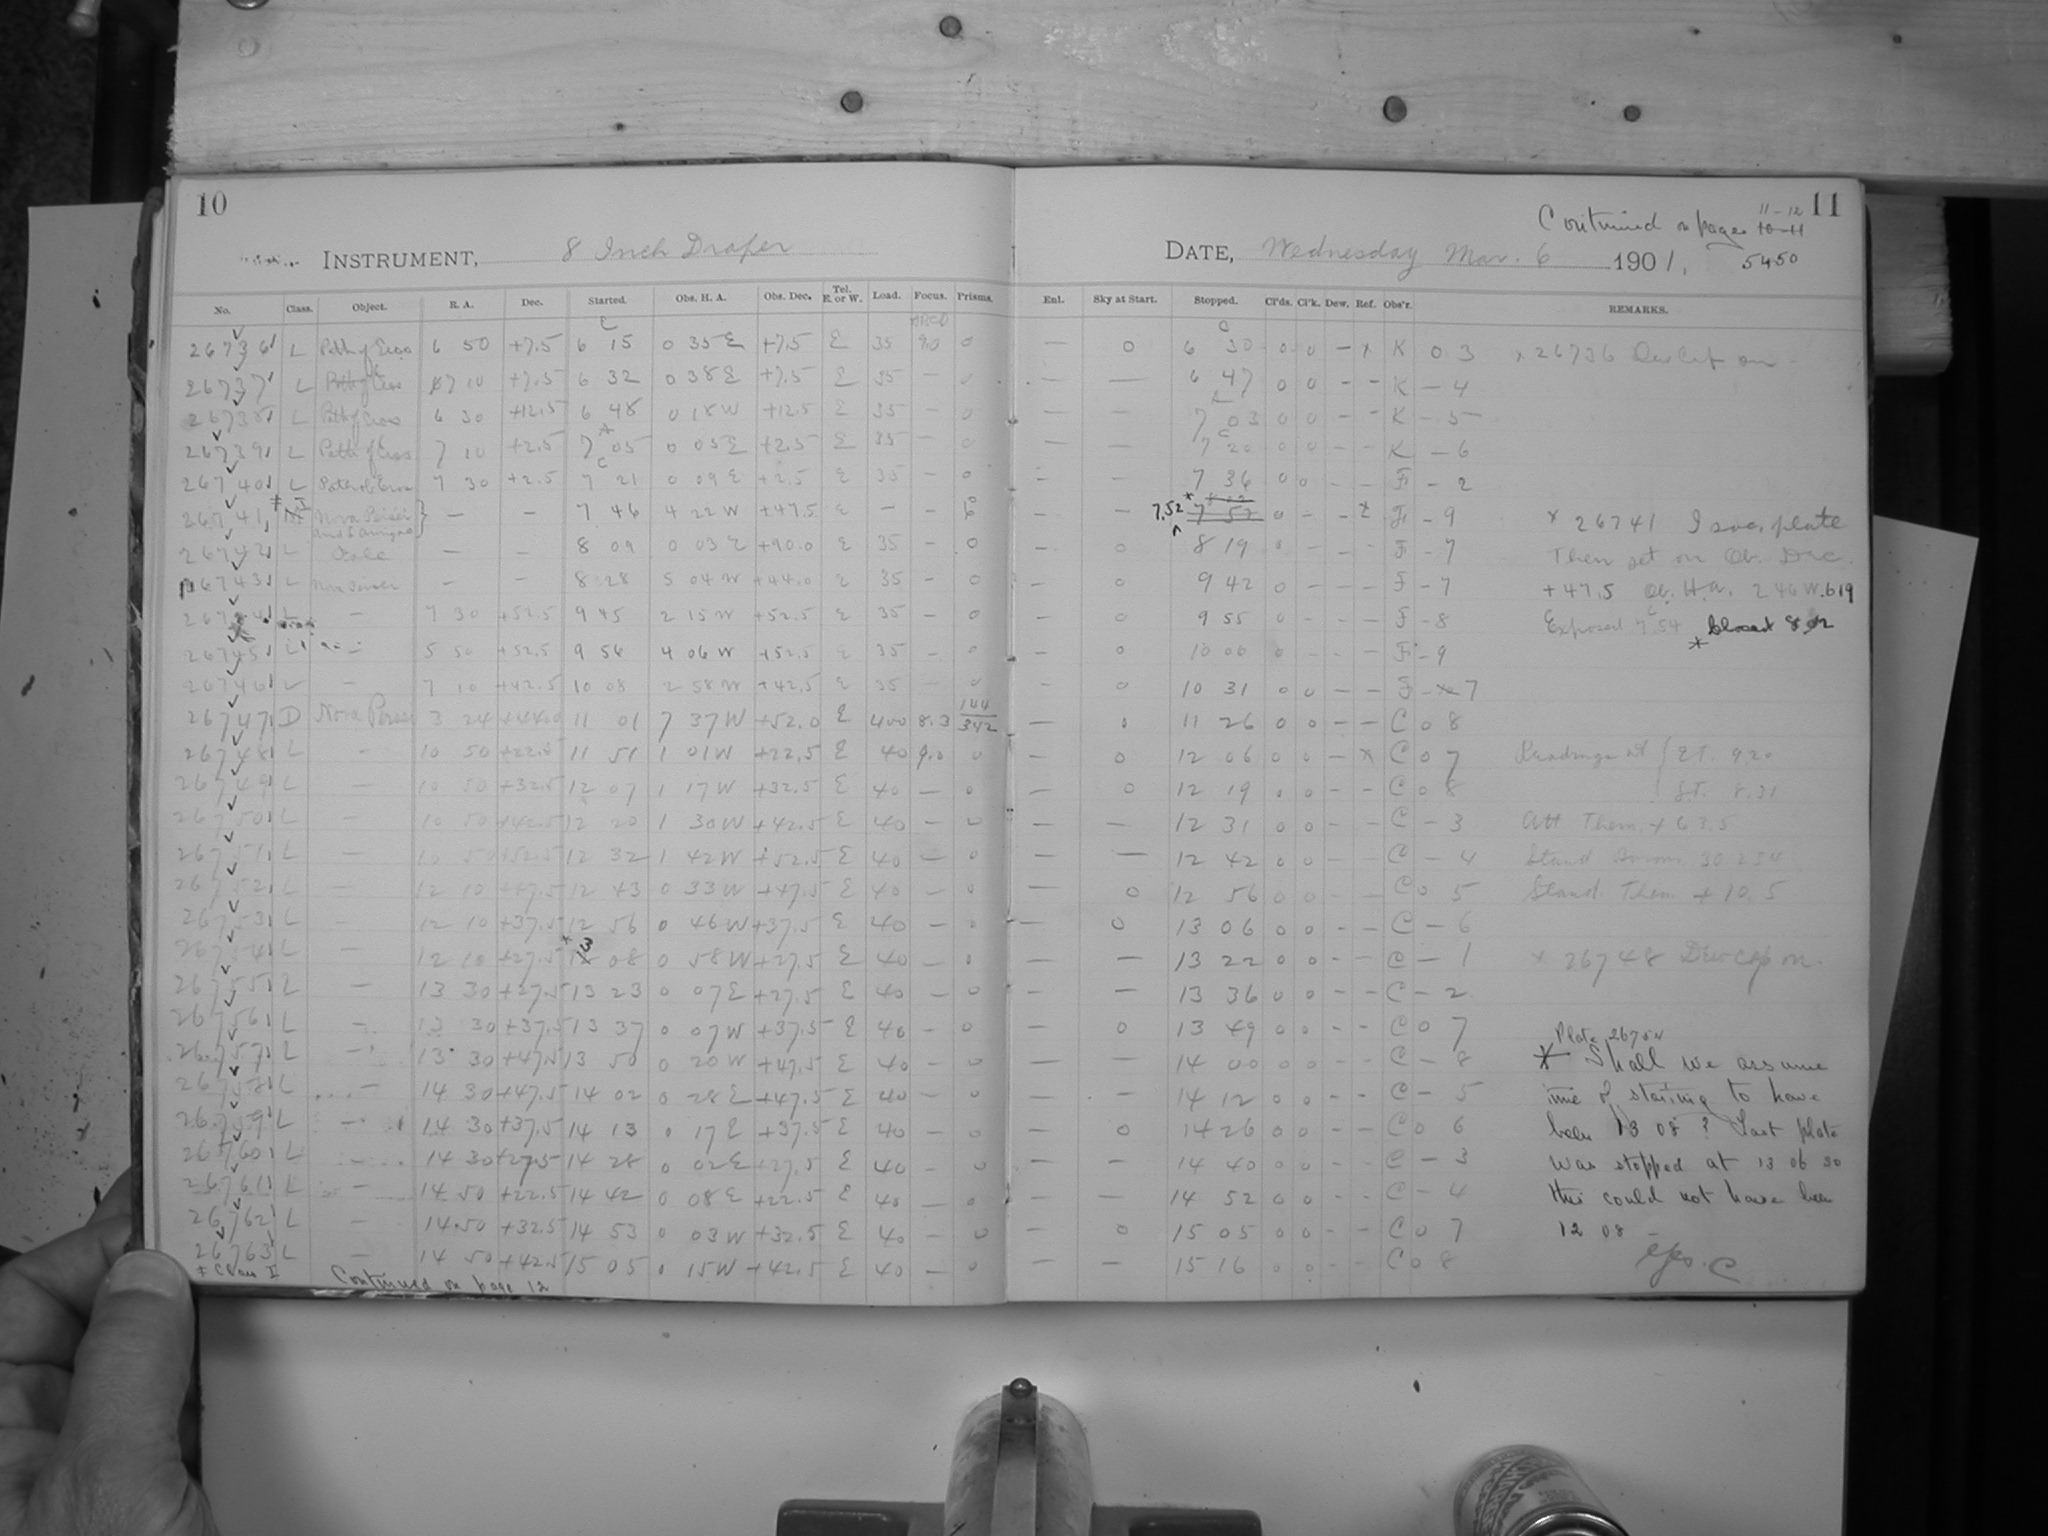 10
11
Continued on pages 10-11 11-12
5450
INSTRUMENT, 8 Inch Draper
DATE, Wednesday Mar. 6 1901.
No. Class. Object. R. A. Dec. Started. Obs. H. A. Obs. Dec. Tel. E. or W. Load. Focus. Prisms. Enl. Sky at Start. Stopped. Cl'ds. Cl'k. Dew. Ref. Obs'r. REMARKS.
26736 L Path of Eros 6 50 +7.5 6 15 0 35 E +7.5 E 35 9.0 0 — 0 6 30 0 0 – x K 0 3 x 26736 Dewcap on –
26737 L Path of Eros 7 10 +7.5 6 32 0 38 E +7.5 E 35 – 0 – — 6 47 0 0 – – K – 4
26738 L Path of Eros 6 30 +12.5 6 48 0 18 W +12.5 E 35 – 0 — — 7 03 0 0 – – K – 5
26739 L Path of Eros 7 10 +2.5 7 05 0 05 E +2.5 E 35 – 0 — — 7 20 0 0 – – K – 6
26740 L Path of Eros 7 30 +2.5 7 21 0 09 E +2.5 E 35 – 0 – — 7 36 0 0 – – F – 2
26741 I Nova Persei and Saurigae — – 7 46 4 22 W +47.5 E – – – — 7.52 7 52 0 – – F – 9 x 26741 I soc. plate
26742 L Pole — – 8 09 0 03 E +90.0 E 35 – 0 – 0 8 19 0 – – – F – 7 Then set on Ob. Dec.
26743 L Nova Persei – – 8 28 5 04 W +44.0 E 35 – 0 – 0 9 42 0 – – – F – 7 +47.5 Ob. H.A. 2 46 W. 619
26744 L – 7 30 +52.5 9 45 2 15 W +52.5 E 35 – 0 – 0 9 55 0 – – – F – 8 Exposed 7 54 * closed 8 02
26745 L – 5 50 +52.5 9 56 4 06 W +52.5 E 35 – 0 – 0 10 06 0 – – – F – 9
26746 L – 7 10 +42.5 10 08 2 58 W +42.5 E 35 – 0 – 0 10 31 0 0 – – F – 7
26747 D Nova Persei 3 24 +44.0 11 01 7 37 W +52.0 E 400 8.3 144 342 — 0 11 26 0 0 – – C 0 8
26748 L – 10 50 +22.5 11 51 1 01 W +22.5 E 40 9.0 0 — 0 12 06 0 0 – x C 0 7 Readings at { E.T. 9.20
26749 L – 10 50 +32.5 12 07 1 17 W +32.5 E 40 – 0 — 0 12 19 0 0 – – C 0 8 S.T. 8.31
26750 L – 10 50 +42.5 12 20 1 30 W +42.5 E 40 – 0 — — 12 31 0 0 – – C – 3 Att Them. +63.5
26751 L – 10 50 +52.5 12 32 1 42 W +52.5 E 40 – 0 — — 12 42 0 0 – – C – 4 Stand Barom. 30.254
26752 L – 12 10 +47.5 12 43 0 33 W +47.5 E 40 – 0 — 0 12 56 0 0 – – C 0 5 Stand. Them +10.5
26753 L – 12 10 +37.5 12 56 0 46 W +37.5 E 40 – 0 — 0 13 06 0 0 – – C – 6
26754 L – 12 10 +27.5 * 13 08 0 58 W +27.5 E 40 – 0 — — 13 22 0 0 – – C – 1 x 26748 Dewcap on.
26755 L – 13 30 +27.5 13 23 0 07 E +27.5 E 40 – 0 — — 13 36 0 0 – – C – 2
26756 L – 13 30 +37.5 13 37 0 07 W +37.5 E 40 – 0 — 0 13 49 0 0 – – C 0 7 Plate 26754
26757 L – 13 30 +47.5 13 50 0 20 W +47.5 E 40 – 0 — — 14 00 0 0 – – C – 8 * Shall we assume
26758 L – 14 30 +47.5 14 02 0 28 E +47.5 E 40 – 0 — — 14 12 0 0 – – C – 5 time of starting to have
26759 L – 14 30 +37.5 14 13 0 17 E +37.5 E 40 – 0 — 0 14 26 0 0 – – C 0 6 been 13 08? Last plate
26760 L – 14 30 +27.5 14 28 0 02 E +27.5 E 40 – 0 — — 14 40 0 0 – – C – 3 was stopped at 13 06 30
26761 L – 14 50 +22.5 14 42 0 08 E +22.5 E 40 – 0 — — 14 52 0 0 – – C – 4 this could not have been
26762 L – 14 50 +32.5 14 53 0 03 W +32.5 E 40 – 0 — 0 15 05 0 0 – – C 0 7 12 08 –
26763 L – 14 50 +42.5 15 05 0 15 W +42.5 E 40 – 0 — — 15 16 0 0 – – C 0 8 Yes. C
‡ Class I Continued on page 12